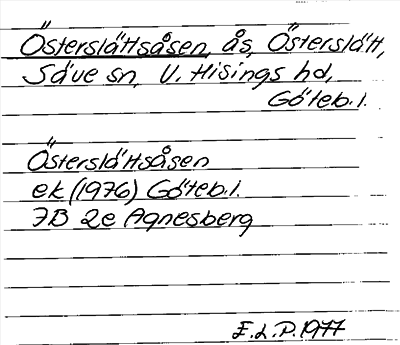 Österslättsåsen, ås, Österslätt,
Säve sn, V. Hisings hd,
Göteb. l.
Österslättsåsen
ek (1976) Göteb. l.
7B 2e Agnesberg
E.L.P. 1977